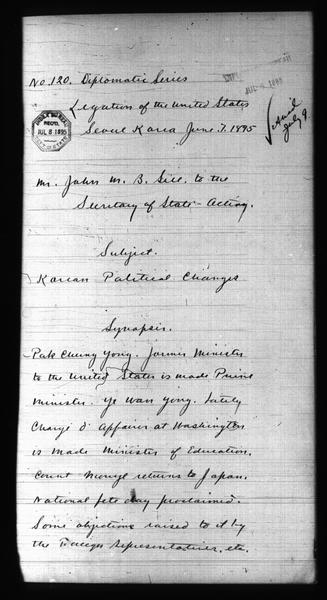 No. 120. Diplomatic Series
Legation of the United States
Seoul Korea June 7. 1895
REC'D.
JUL 8 1895
Ans'd
July 9
Mr. John M. B. Sill. to the
Secretary of State - Acting.
Subject.
Korean Political Changes
Synopsis.
Pak Chung Yong. former Minister
to the United States is made Prime
Minister. Ye Wan Yong. lately
Chargé d' Affaires at Washington
is made Minister of Education.
Count Inouye returns to Japan.
National fete day proclaimed.
Some objections raised to it by
the Foreign Representatives, etc.